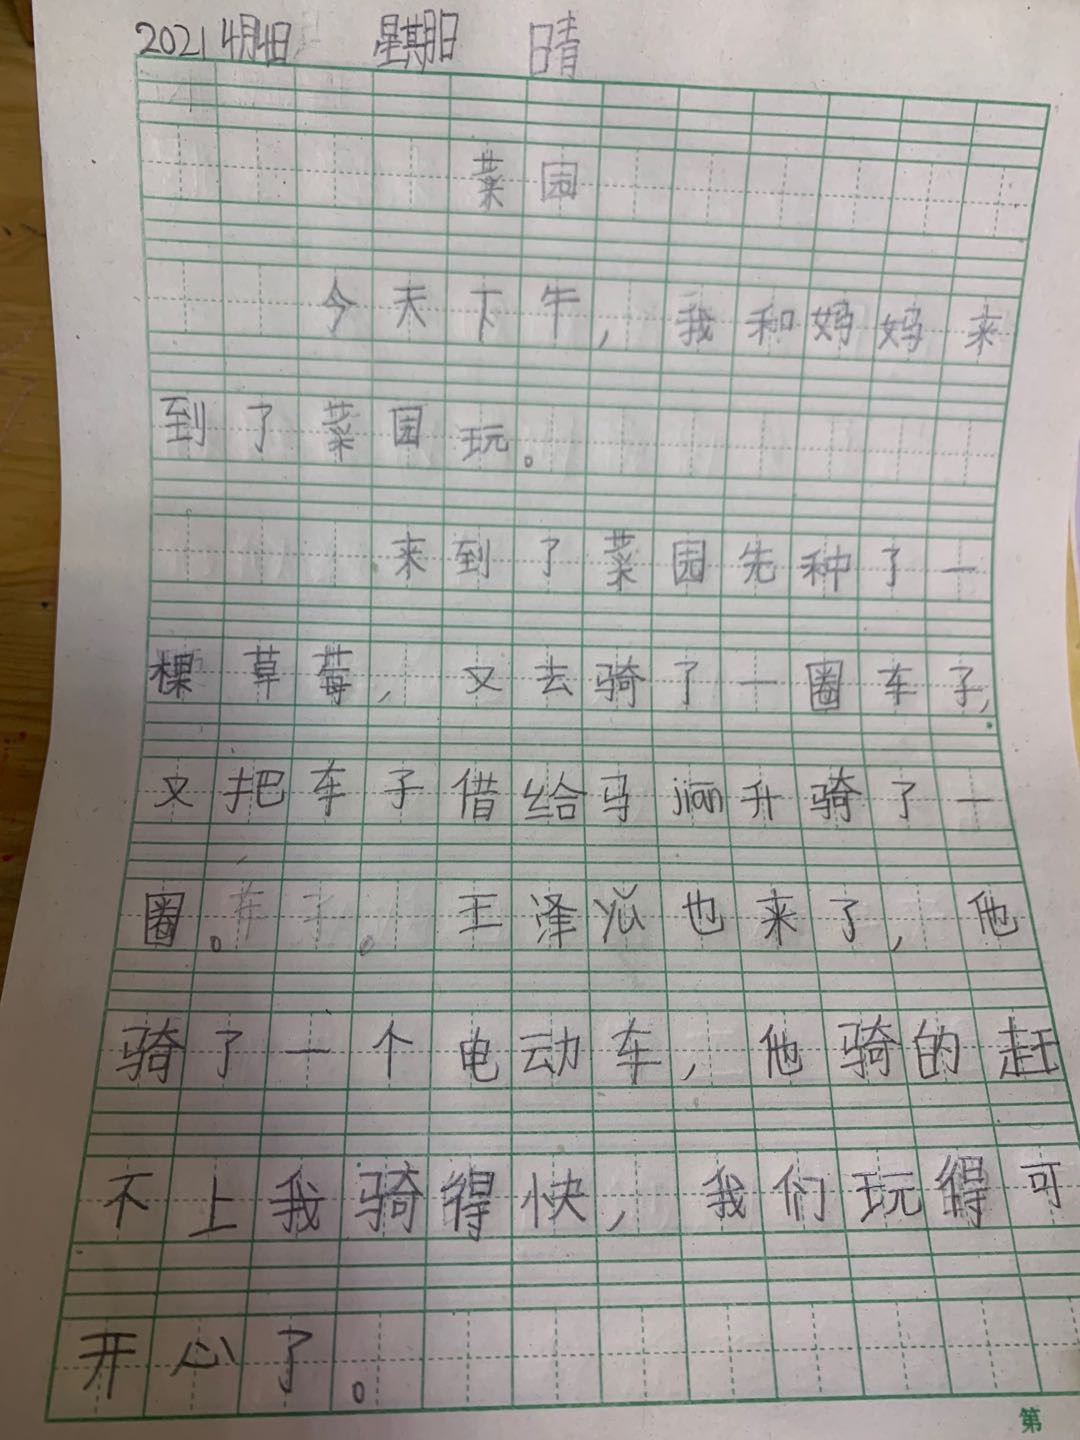 2021 4月4日 星期日 晴
菜园
今天下牛，我和妈妈来
到了菜园玩。
来到了菜园先种了一
棵草莓，又去骑了一圈车子，
又把车子借给马jian升骑了一
圈。车子。王泽也来了，他
骑了一个电动车，他骑的赶
不上我骑得快，我们玩得可
开心了。
第